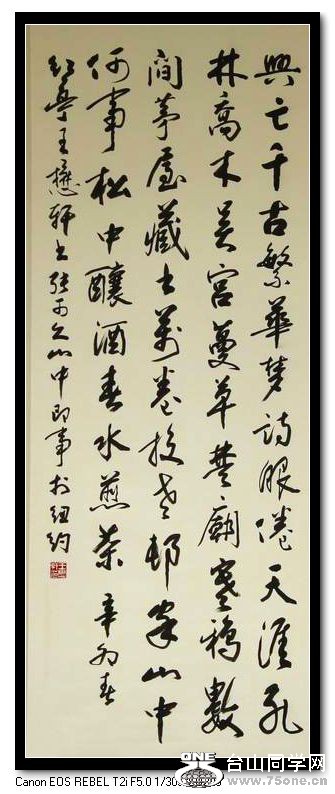 興亡千古繁華梦詩眼倦天涯孔
林喬木吴宫蔓草楚廟寒鴉數
間茅屋藏书萬卷投老邨家山中
何事松中釀酒春水煎茶 辛卯春
王懋軒书張可久山中即事於纽約
Canon EOS REBEL T2i F5.0 1/30s
ONE 台山同学网